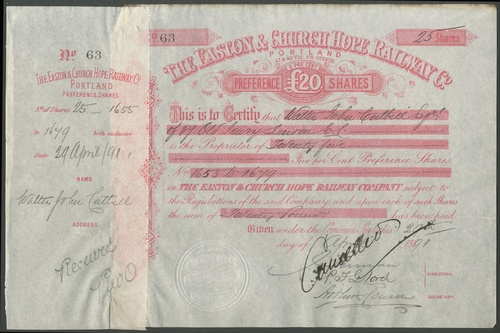 No 63
THE EASTON & CHURCH HOPE RAILWAY Co
PORTLAND
PREFERENCE SHARES.
No of Shares 25 - 1655
to 1679 both inclusive
Date 29 April / 91
NAME
Walter John Cuttill
ADDRESS
Received
No 63
25 Shares
THE EASTON & CHURCH HOPE RAILWAY Co
PORTLAND
5 PER CENT
PREFERENCE £20 SHARES
This is to Certify that Walter John Cuttill
of 97 Old Jewry London E.C.
is the Proprietor of Twenty five
Five per Cent. Preference Shares
No 1655 to 1679
in THE EASTON & CHURCH HOPE RAILWAY COMPANY subject to
the Regulations of the said Company and upon each of such Shares
the sum of Twenty Pounds has been paid
Given under the Common Seal this 29th
day of April 1891
Cancelled
DIRECTORS
SECRETARY